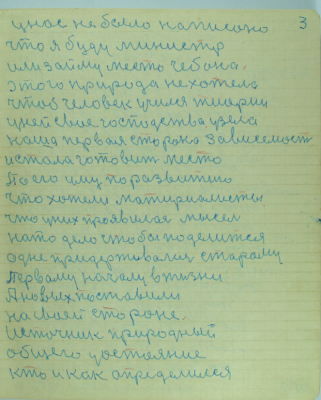 3
у нас не было написоно
что я буду министр
или займу место чебона.
этого природа не хотела
чтоб человек учился тиории
у ней свое господства узела
наша первая сторона зависемост
и стала готовит место
По его уму по развитию
что хотели матириалисты
что у них проявилая мысел
на то дело чтобы поделится
одне придержовались старому
первому началу в жизни
А новых поставили
на своей стороне.
Источник природный
общего достояние
кто и как определился